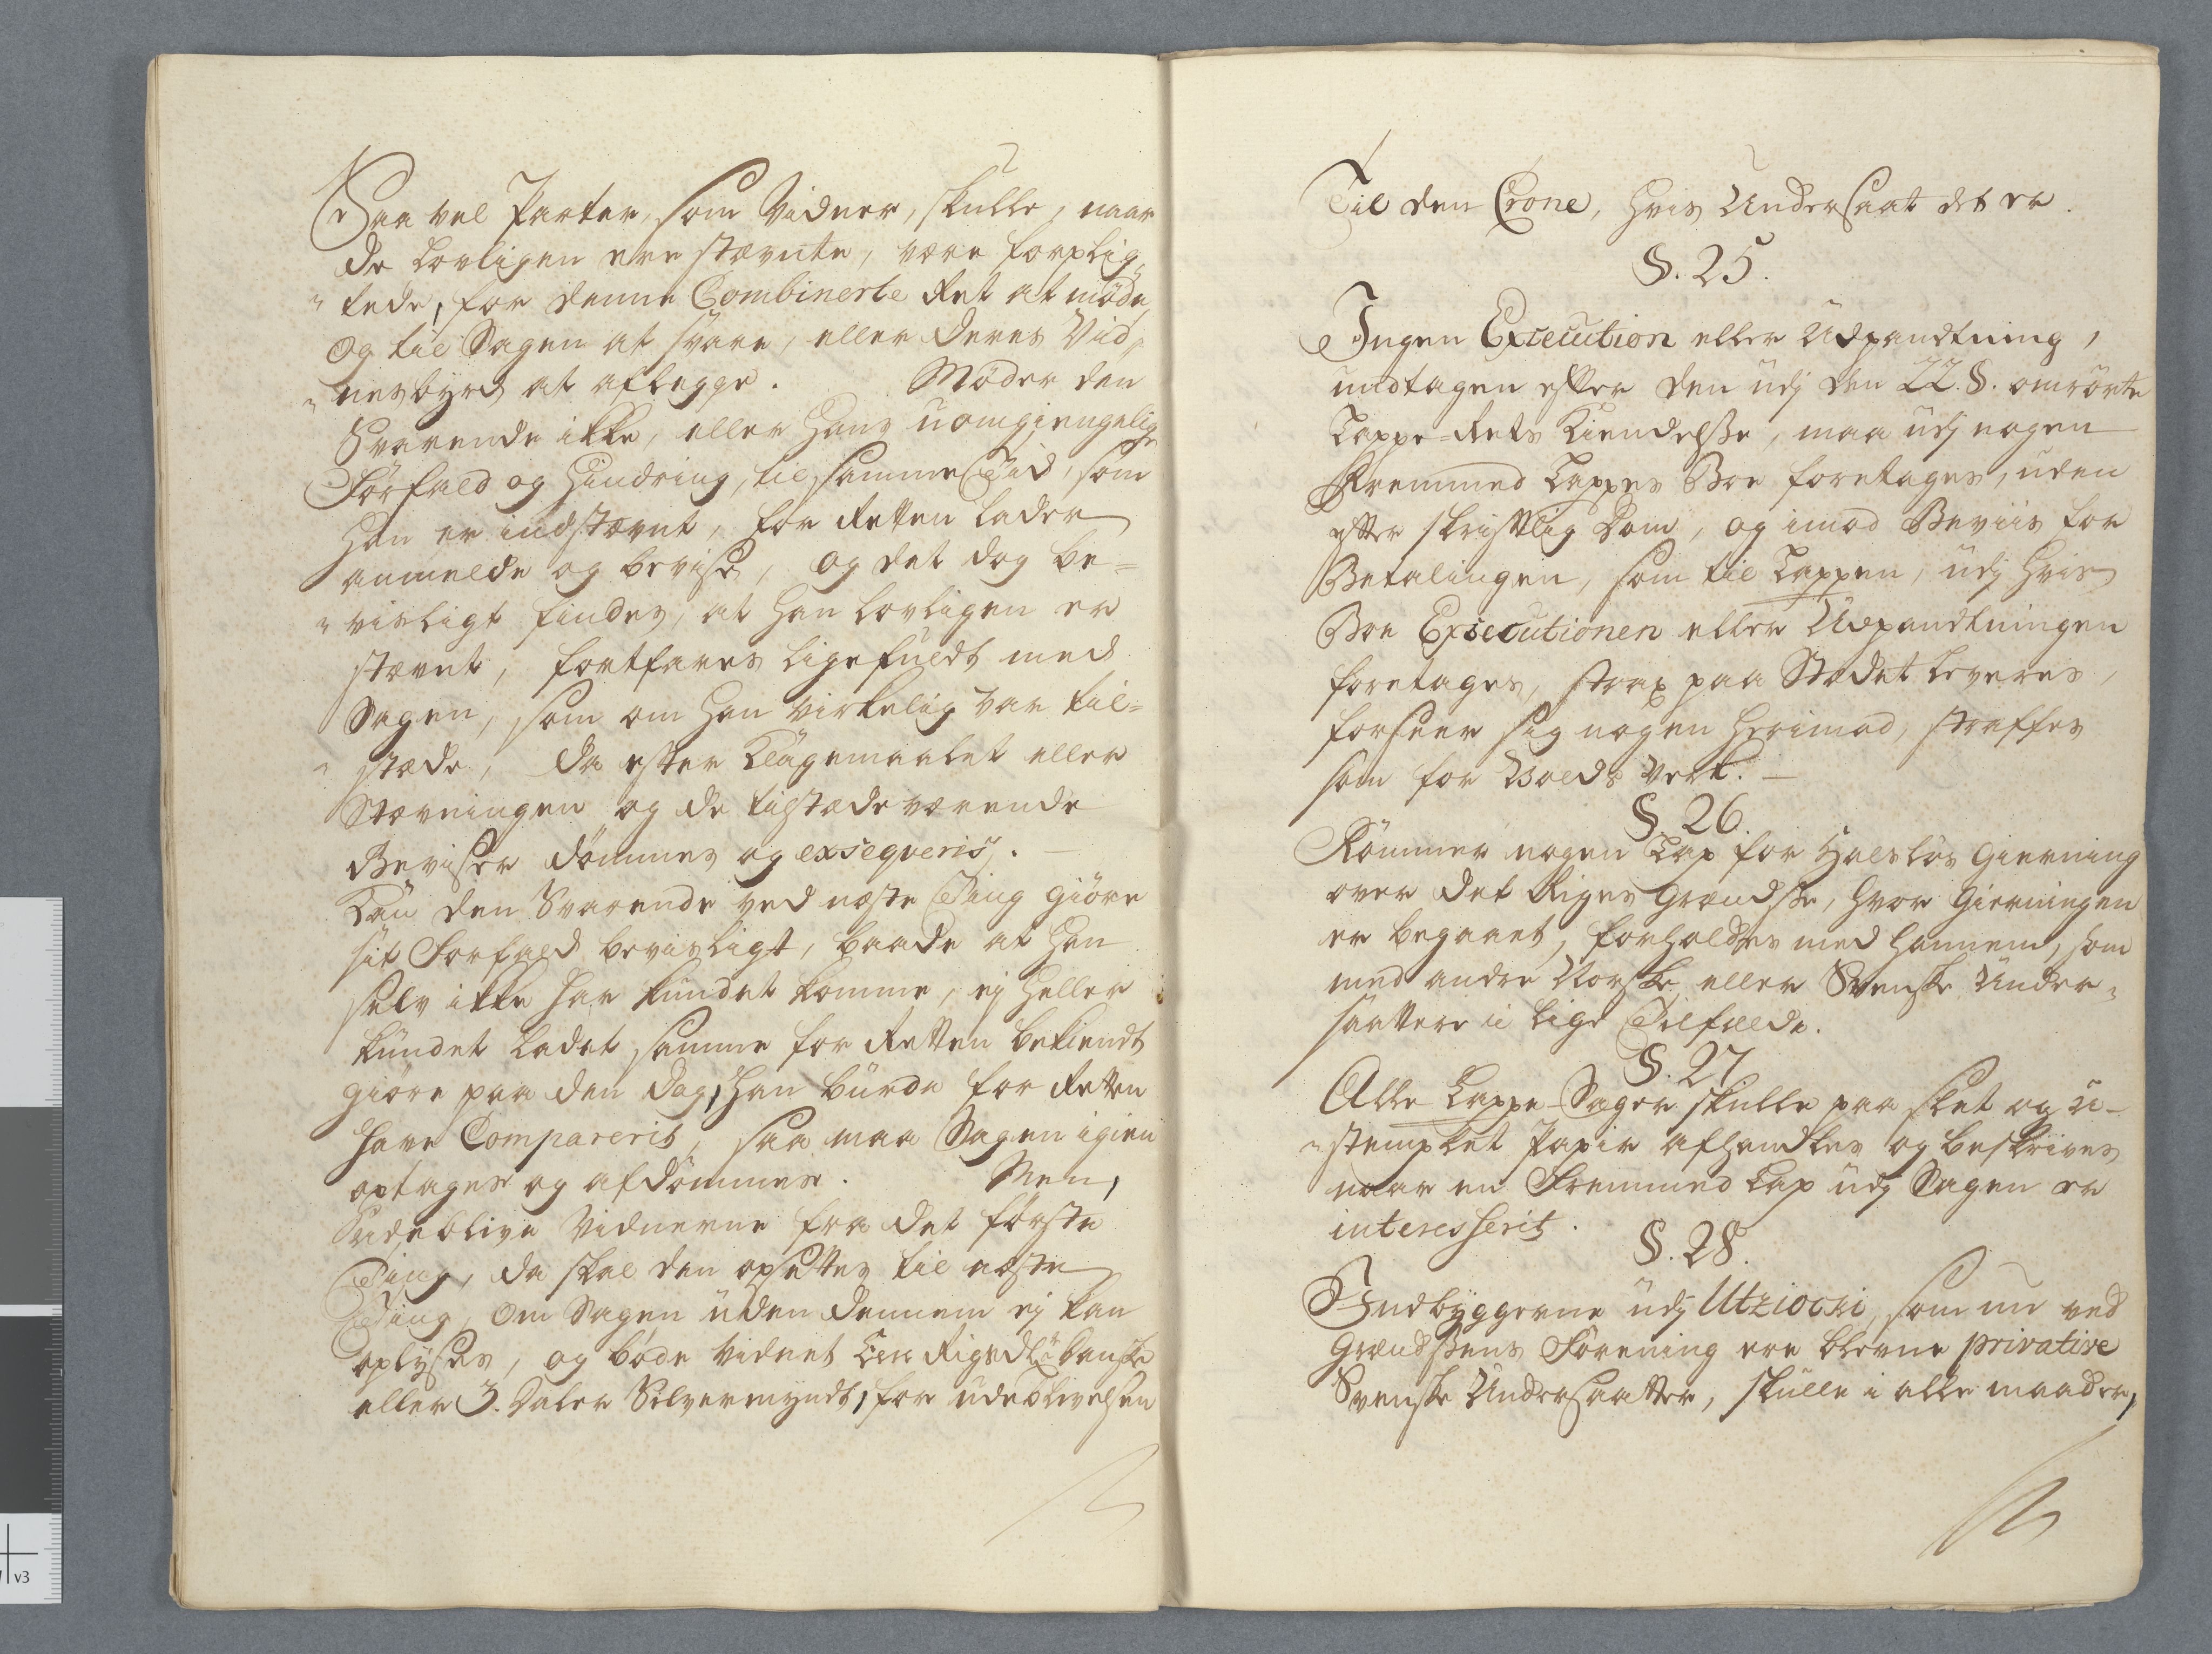 Saa vel Parter, som Vidner, skulle, naar
de lovligen ere stævnte, være forplig„
„tede, for denne Combinerte Ret at møde,
og til Sagen at svare, eller deres Vid„
„nesbyrd at aflegge. Møder den
Svarende ikke, eller hans uomgiengelige
Forfald og Hindring, til samme Tid, som
han er indstævnt, for Retten lader
anmelde og bevise, og det dog be=
„visligt findes, at han lovligen er
stævnt, fortfares ligefuldt med
Sagen, som om han virkelig var til=
„stæde, da efter Klagemaalet eller
Stævningen og de tilstædeværende
Beviser dømmes og exseqveris. —
Kan den Svarende ved næste Ting giøre
sit Forfald bevisligt, baade at han
selv ikke har kundet komme, ej heller
kundet ladet samme for Retten bekiendt
giøre paa den Dag, han burde for Retten
have Comparerit, saa maa Sagen igien
optages og afdømmes. Men,
Udeblive Vidnerne fra det første
Ting, da skal den opsettes til næste
Ting, om Sagen uden dennem ej kan
oplyses, og bøde Vidnet Een Rigsdlr Danske
eller 3. Daler Silvermyndt, for udeblivelsen
Til den Crone, hvis Undersaat det er.
§. 25.
Ingen Execution eller Udpandtning,
undtagen efter den udj den 22. §. omrørte
Lappe=Rets Kiendelsse, maa udj nogen
Fremmed Lappes Boe foretages, uden
efter skriftlig Dom, og imod Beviis for
Betalingen, som til Lappen, udj hvis
Boe Executionen eller Udpandtningen
foretages, strax paa Stædet leveres,
forseer sig nogen herimod, straffes
som for Volds Verk. —
§. 26.
Rømmer nogen Lap for Halsløs Gierning
over det Riges Grændse, hvor Gierningen
er begaaet, forholdes med hannem, som
med andre Norske eller Svenske Under„
saattere i lige Tilfælde.
§. 27
Alle Lappe-Sager skulle paa slet og u-
„stemplet Papir afhandles og beskrives
naar en Fremmed Lap udj Sagen er
interesserit.
§. 28.
Indbyggerne udj Utziocki, som nu ved
Grændsens Foreening ere blevne privative
Svenske Undersaatter, skulle i alle maader,